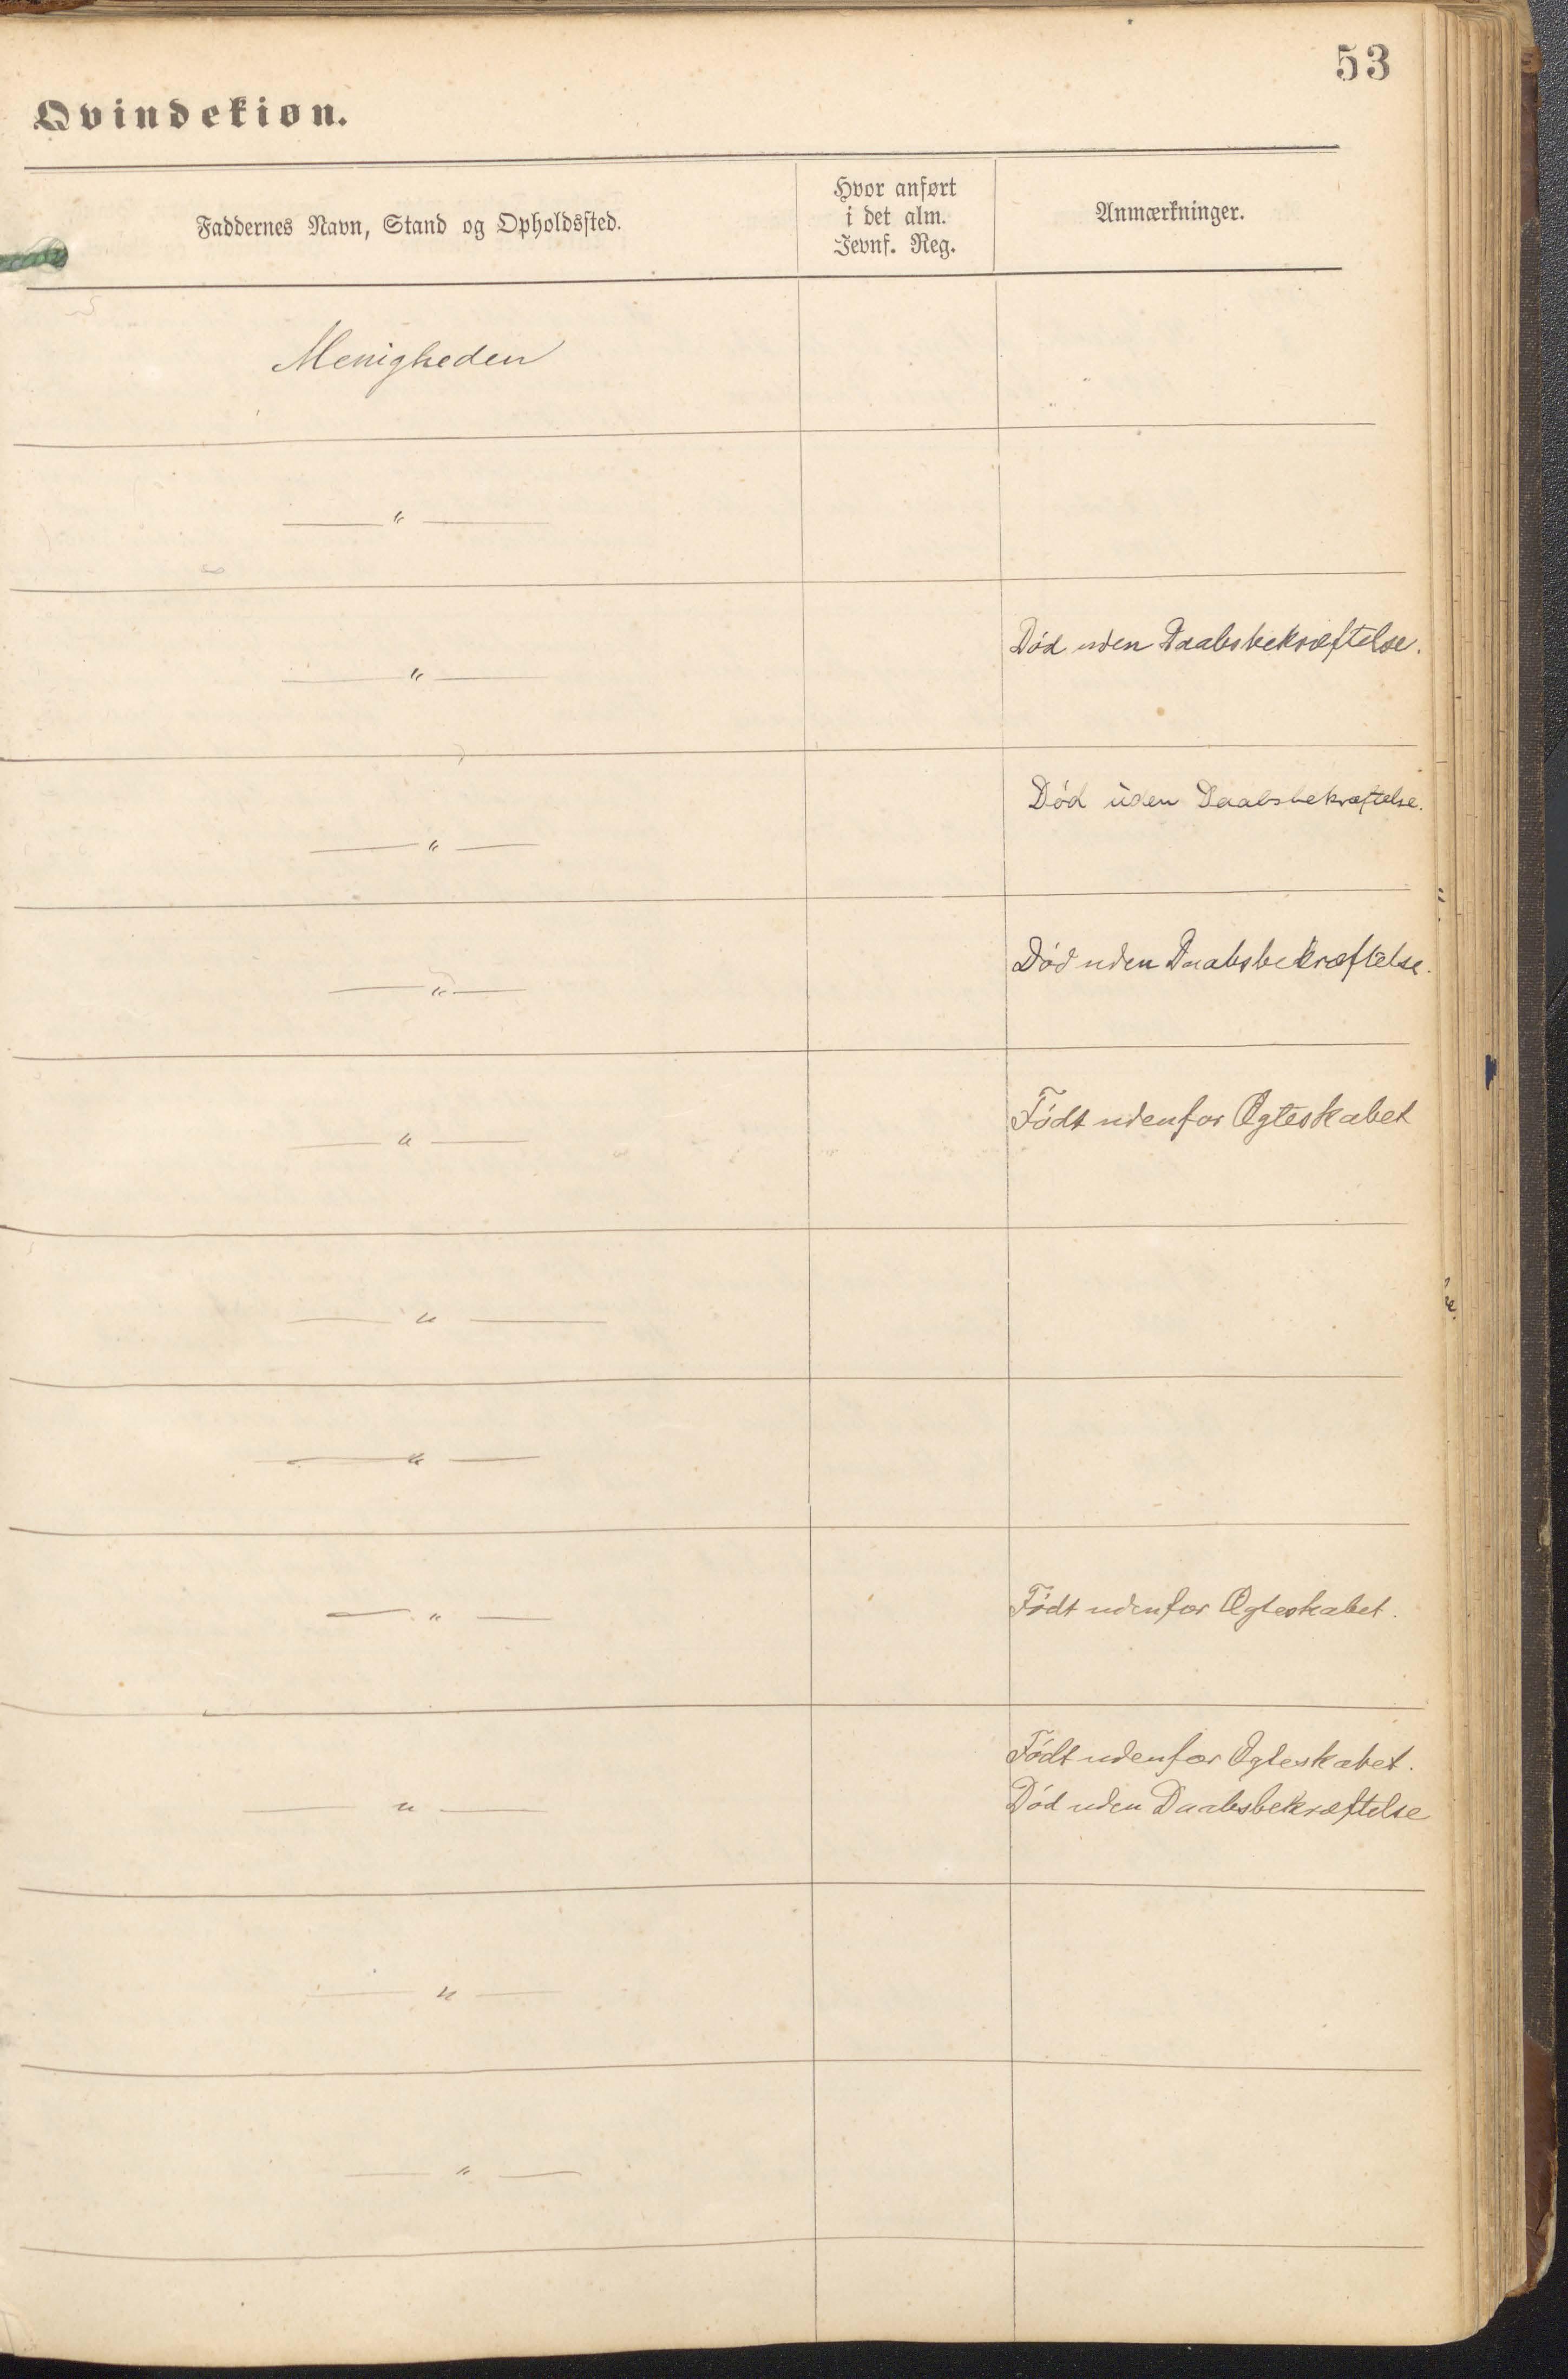 53
Qvindekiøn.
Faddernes Navn, Stand og Opholdssted.
Hvor anført
i det alm.
Jevnf. Reg.
Anmærkninger.
Menigheden
— " —
— " —
Död uden Daabsbekræftelse.
— " —
Död uden Daabsbekræftelse.
— " —
Död uden Daabsbekræftelse.
— " —
Födt udenfor Ægteskabet
— " —
— " —
— " —
Födt udenfor Ægteskabet.
— " —
Födt udenfor Ægteskabet.
Död uden Daabsbekræftelse
— " —
— " —